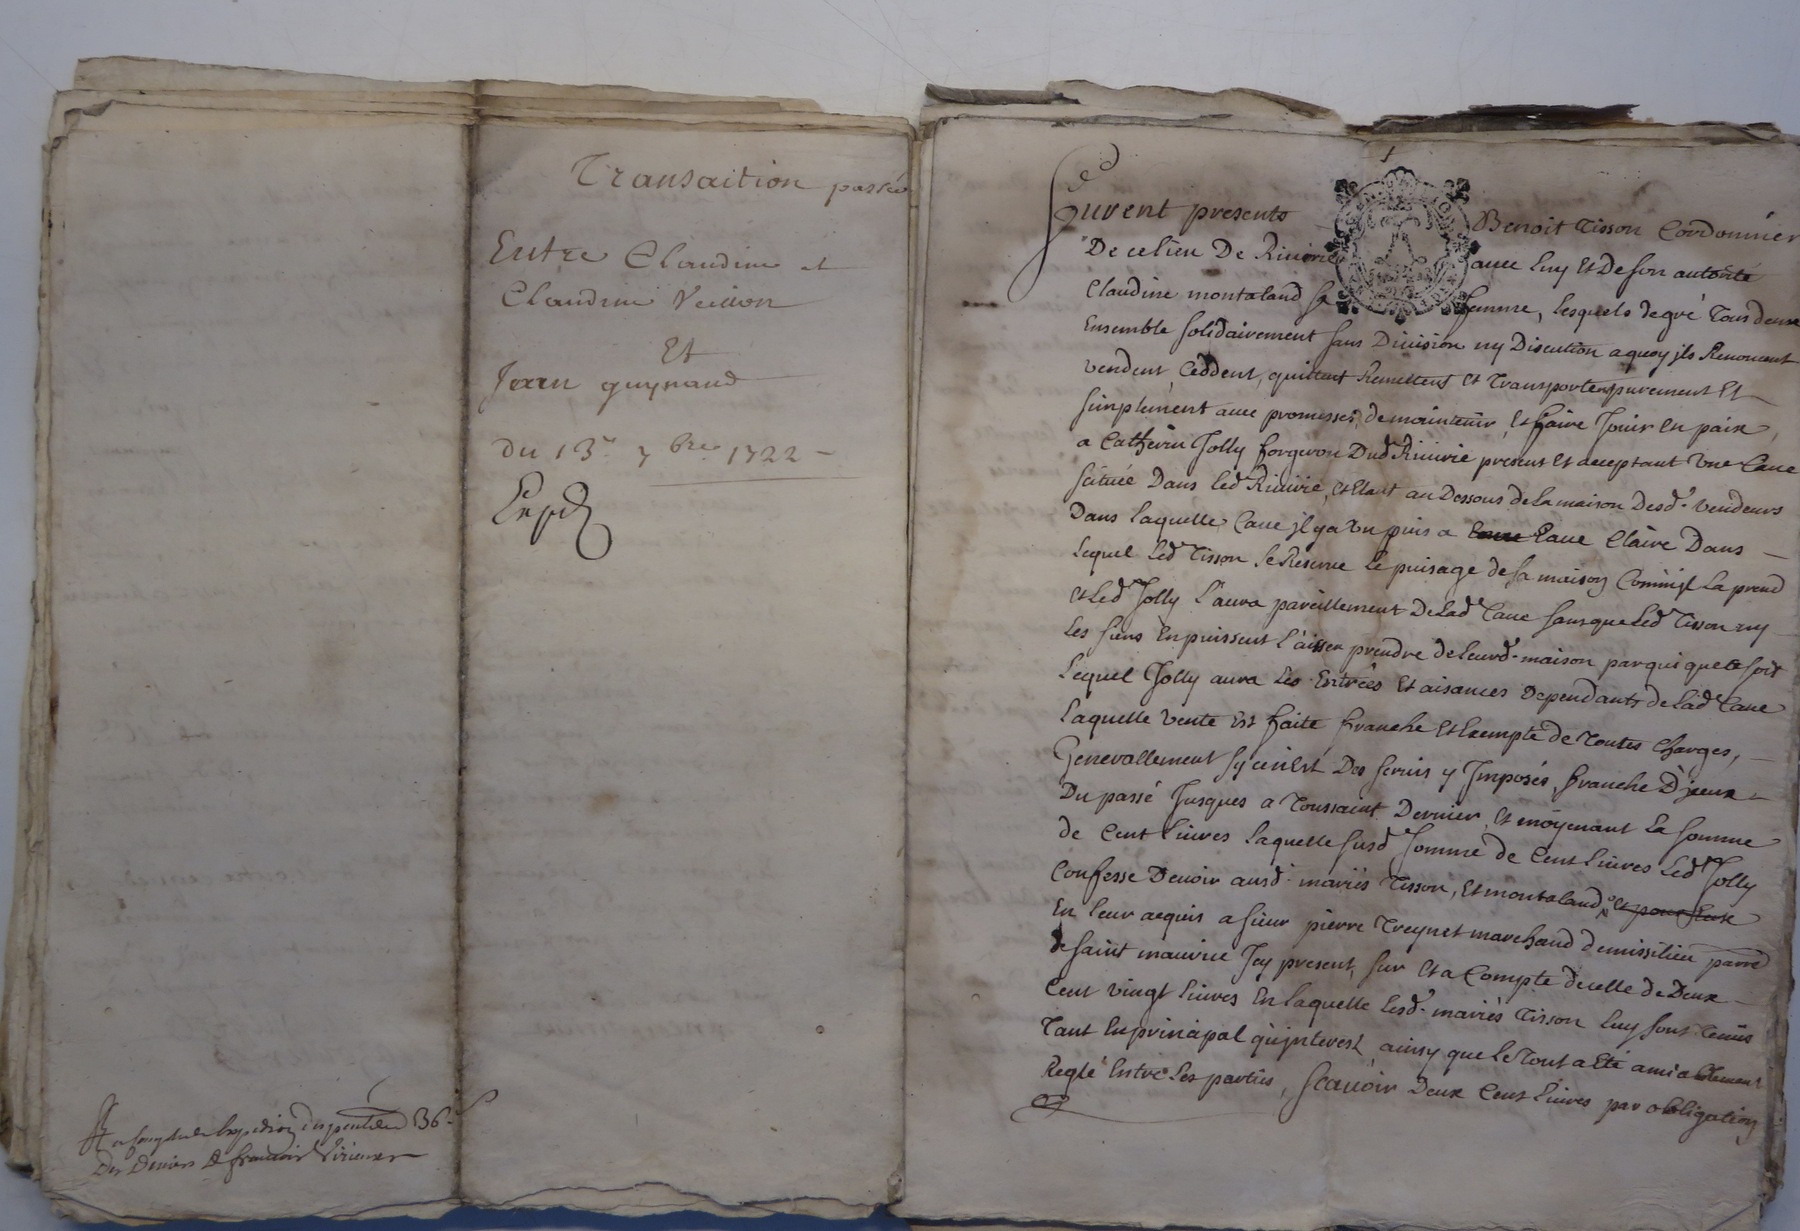 Transaction passée
Entre Claudine et
Claudine Veillon
Et
Jean guynand
du 13e 7bre 1722
Expd
Des deniers de francois
furent presents Benoit Tisson Cordonnier
De ce lieu De Riverie avec luy Et De son autorité
Claudine montaland sa femme, Lesquels de gré Tous deux
Ensemble solidairement sans Division ny Discution a quoy jls Renoncent
vendent, Ceddent, quittent Remettent Et Transportent purement Et
simplement avec promesses de maintenir, Et faire Jouir En paix,
a Catherin Jolly forgeron Dud Riverie present Et acceptant Une Cave
scituée Dans led Riverie, Etant au Dessous de La maison Desd. vendeurs
Dans laquelle Cave jl y a Un puis a Eaue Claire Dans
Lequel Led Tisson se Reserve Le puisage de sa maison Comm'jl La prend
Et Led Jolly L'aura pareillement De Lad Cave sans que Led Tisson ny
Les siens En puissent L'aisser prendre de Leurd. maison par qui que ce soit
Lequel Jolly aura Les Entrées Et aisances Dependants de Lad Cave
Laquelle vente Est faite franche Et Exempte de Toutes Charges,
Generallement sy ce n'Est Des servis y Jmposés, franche D'jceux
Du passé Jusques a Toussaint Dernier, Et moyenant La somme
de Cent Livres Laquelle susd somme de Cent Livres Led Jolly
Confesse Devoir ausd. mariés Tisson, Et montaland, et pour Eux
En leur acquis a sieur pierre Treynet marchand de missilieu parre
de saint maurice Jcy present, sur Et a Compte de celle de Deux
Cent vingt Livres En laquelle Lesd. mariés Tisson Luy sont Tenus
Tant En principal qu'jnterest, ainsy que Le Tout a Eté amiablement
Reglé Entre Les parties, sçavoir Deux Cent Livres par obligation